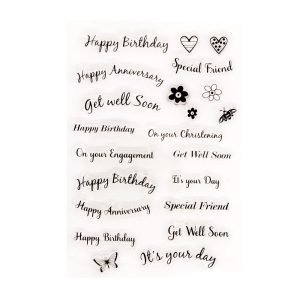 Happy Birthday
Special Friend
Happy Anniversary
Get well Soon
Happy Birthday
On your Christening
On your Engagement
Get Well Soon
Happy Birthday
It's your Day
Happy Anniversary
Special Friend
Happy Birthday
Get Well Soon
It's your day